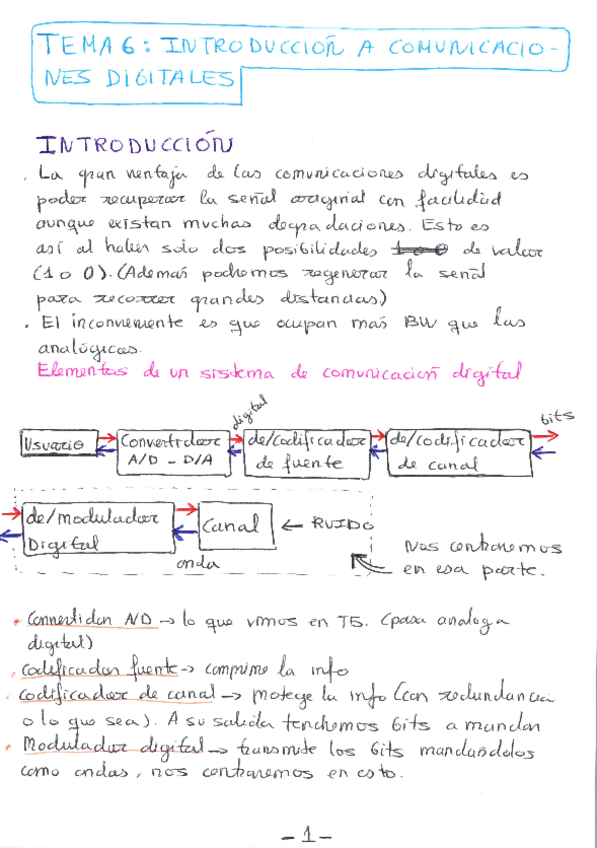 TEMA 6: INTRODUCCIÓN A COMUNICACIO-
NES DIGITALES
INTRODUCCIÓN
. La gran ventaja de las comunicaciones digitales es
poder recuperar la señal original con facilidad
aunque existan muchas degradaciones. Esto es
así al haber solo dos posibilidades de valor
(1 o 0). (Además podremos regenerar la señal
para recorrer grandes distancias)
. El inconveniente es que ocupan más BW que las
analógicas.
Elementos de un sistema de comunicación digital
Usuario
Convertidor
A/D - D/A
digital
de/codificador
de fuente
de/codificador
de canal
bits
de/modulador
Digital
Canal
← RUIDO
onda
Nos centraremos
en esa parte.
• Convertidor A/D → lo que vimos en T5. (para analog a
digital)
. Codificador fuente → comprime la info
. Codificador de canal → protege la info (con redundancia
o lo que sea). A su salida tendremos bits a mandar
• Modulador digital → transmite los bits mandándolos
como ondas, nos centraremos en esto.
- 1 -